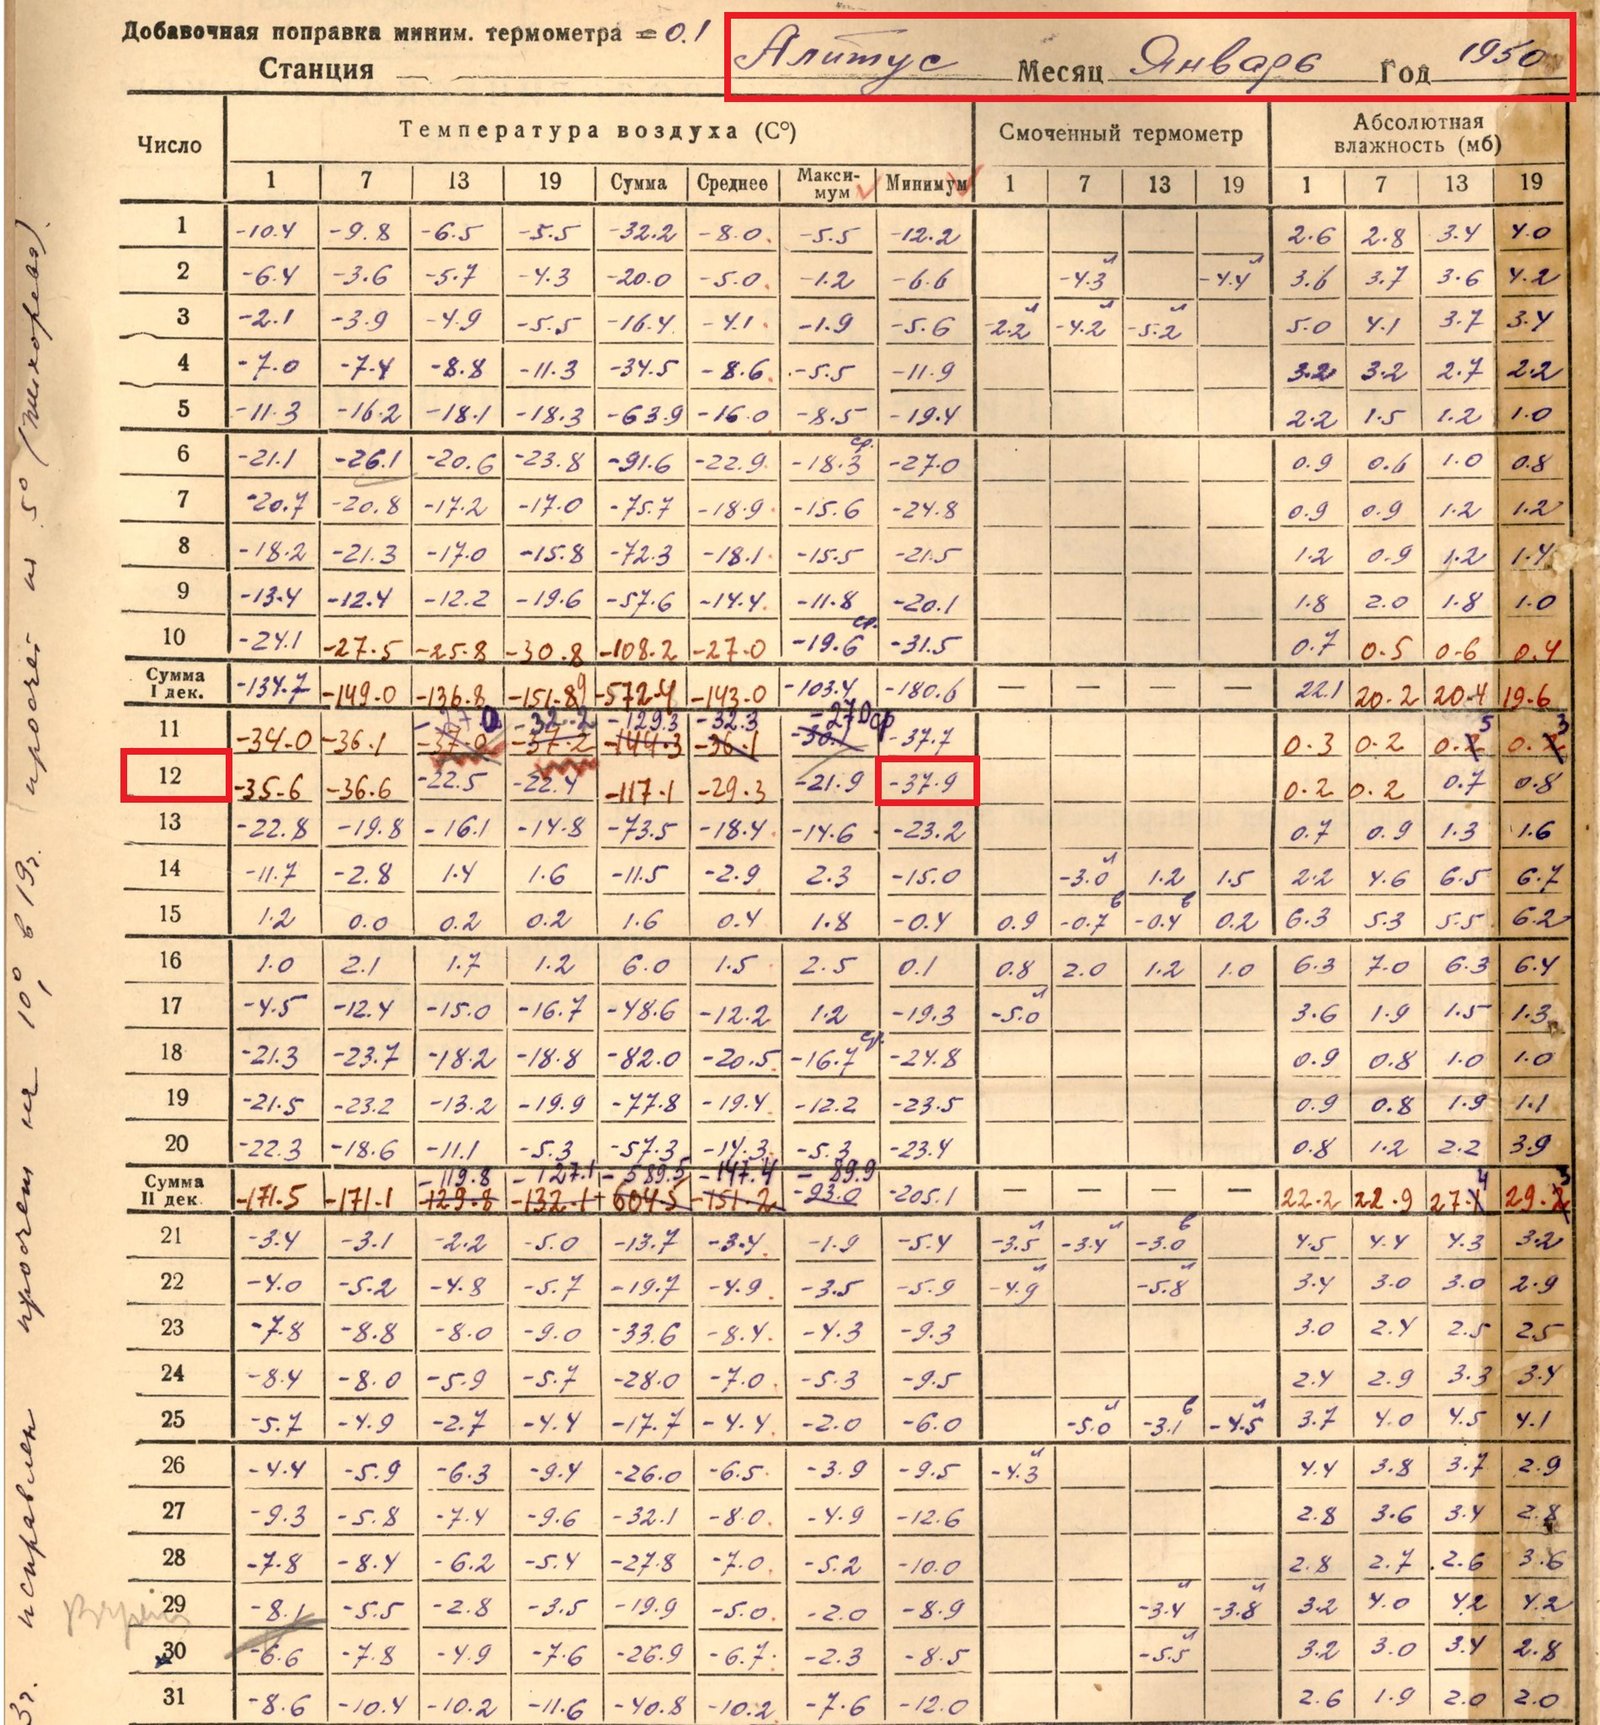 Добавочная поправка миним. термометра = 0.1
Станция Алитус Месяц Январь Год 1950
Число Температура воздуха (С°) Смоченный термометр Абсолютная влажность (мб)
1 7 13 19 Сумма Среднее Макси-мум Минимум 1 7 13 19 1 7 13 19
1 -10.4 -9.8 -6.5 -5.5 -32.2 -8.0 -5.5 -12.2 2.6 2.8 3.4 4.0
2 -6.4 -3.6 -5.7 -4.3 -20.0 -5.0 -1.2 -6.6 -4.3 л -4.4 л 3.6 3.7 3.6 4.2
3 -2.1 -3.9 -4.9 -5.5 -16.4 -4.1 -1.9 -5.6 -2.2 л -4.2 л -5.2 л 5.0 4.1 3.7 3.4
4 -7.0 -7.4 -8.8 -11.3 -34.5 -8.6 -5.5 -11.9 3.2 3.2 2.7 2.2
5 -11.3 -16.2 -18.1 -18.3 -63.9 -16.0 -8.5 -19.4 2.2 1.5 1.2 1.0
6 -21.1 -26.1 -20.6 -23.8 -91.6 -22.9 -18.3 ср. -27.0 0.9 0.6 1.0 0.8
7 -20.7 -20.8 -17.2 -17.0 -75.7 -18.9 -15.6 -24.8 0.9 0.9 1.2 1.2
8 -18.2 -21.3 -17.0 -15.8 -72.3 -18.1 -15.5 -21.5 1.2 0.9 1.2 1.4
9 -13.4 -12.4 -12.2 -19.6 -57.6 -14.4 -11.8 -20.1 1.8 2.0 1.8 1.0
10 -24.1 -27.5 -25.8 -30.8 -108.2 -27.0 -19.6 ср. -31.5 0.7 0.5 0.6 0.4
Сумма I дек. -134.7 -149.0 -136.8 -151.89 -572.4 -143.0 -103.4 -180.6 — — — — 22.1 20.2 20.4 19.6
-27.0 -32.2 -129.3 -32.3 -27.0 ср 5 3
11 -34.0 -36.1 -37.0 -37.2 -144.3 -36.1 -30.1 -37.7 0.3 0.2 0.2 0.2
12 -35.6 -36.6 -22.5 -22.4 -117.1 -29.3 -21.9 -37.9 0.2 0.2 0.7 0.8
13 -22.8 -19.8 -16.1 -14.8 -73.5 -18.4 -14.6 -23.2 0.7 0.9 1.3 1.6
14 -11.7 -2.8 1.4 1.6 -11.5 -2.9 2.3 -15.0 -3.0 л 1.2 1.5 2.2 4.6 6.5 6.7
15 1.2 0.0 0.2 0.2 1.6 0.4 1.8 -0.4 0.9 -0.7 в -0.4 в 0.2 6.3 5.3 5.5 6.2
16 1.0 2.1 1.7 1.2 6.0 1.5 2.5 0.1 0.8 2.0 1.2 1.0 6.3 7.0 6.3 6.4
17 -4.5 -12.4 -15.0 -16.7 -48.6 -12.2 1.2 -19.3 -5.0 л 3.6 1.9 1.5 1.3
18 -21.3 -23.7 -18.2 -18.8 -82.0 -20.5 -16.7 ср. -24.8 0.9 0.8 1.0 1.0
19 -21.5 -23.2 -13.2 -19.9 -77.8 -19.4 -12.2 -23.5 0.9 0.8 1.9 1.1
20 -22.3 -18.6 -11.1 -5.3 -57.3 -14.3 -5.3 -23.4 0.8 1.2 2.2 3.9
-119.8 -127.1 -589.5 -147.4 -89.9 4 3
Сумма II дек -171.5 -171.1 -129.8 -132.1 -604.5 -151.2 -93.0 -205.1 — — — — 22.2 22.9 27.1 29.2
21 -3.4 -3.1 -2.2 -5.0 -13.7 -3.4 -1.9 -5.4 -3.5 л -3.4 л -3.0 в 4.5 4.4 4.3 3.2
22 -4.0 -5.2 -4.8 -5.7 -19.7 -4.9 -3.5 -5.9 -4.9 л -5.8 л 3.4 3.0 3.0 2.9
23 -7.8 -8.8 -8.0 -9.0 -33.6 -8.4 -4.3 -9.3 3.0 2.4 2.5 2.5
24 -8.4 -8.0 -5.9 -5.7 -28.0 -7.0 -5.3 -9.5 2.4 2.9 3.3 3.4
25 -5.7 -4.9 -2.7 -4.4 -17.7 -4.4 -2.0 -6.0 -5.0 л -3.1 в -4.5 л 3.7 4.0 4.5 4.1
26 -4.4 -5.9 -6.3 -9.4 -26.0 -6.5 -3.9 -9.5 -4.3 л 4.4 3.8 3.7 2.9
27 -9.3 -5.8 -7.4 -9.6 -32.1 -8.0 -4.9 -12.6 2.8 3.6 3.4 2.8
28 -7.8 -8.4 -6.2 -5.4 -27.8 -7.0 -5.2 -10.0 2.8 2.7 2.6 3.6
29 -8.1 -5.5 -2.8 -3.5 -19.9 -5.0 -2.0 -8.9 -3.4 л -3.8 л 3.2 4.0 4.2 4.2
30 -6.6 -7.8 -4.9 -7.6 -26.9 -6.7 -2.3 -8.5 -5.5 л 3.2 3.0 3.4 2.8
31 -8.6 -10.4 -10.2 -11.6 -40.8 -10.2 -7.6 -12.0 2.6 1.9 2.0 2.0
3г. исправлен просчет на 10°, в 19г. просчет на 5°